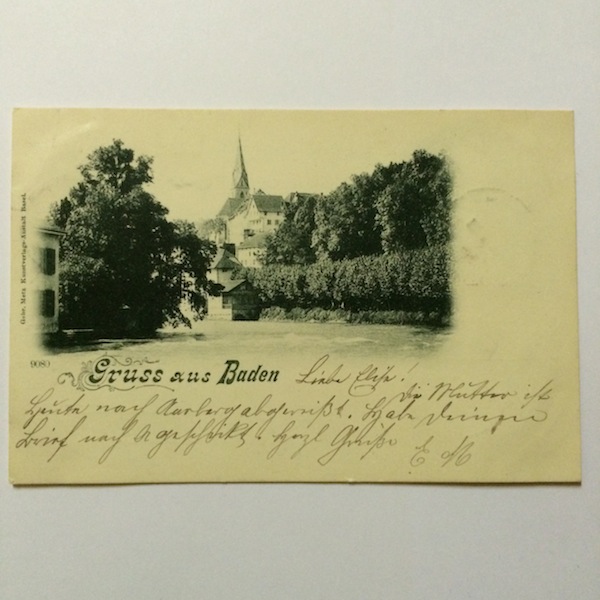 Gebr. Metz Kunstverlags-Anstalt Basel.
Gruss aus Baden
Liebe Elise!
Die Mutter ist
heute nach Aarberg abgereißt. Habe Deinen
Brief nach A geschickt. Herzl Grüße
E M